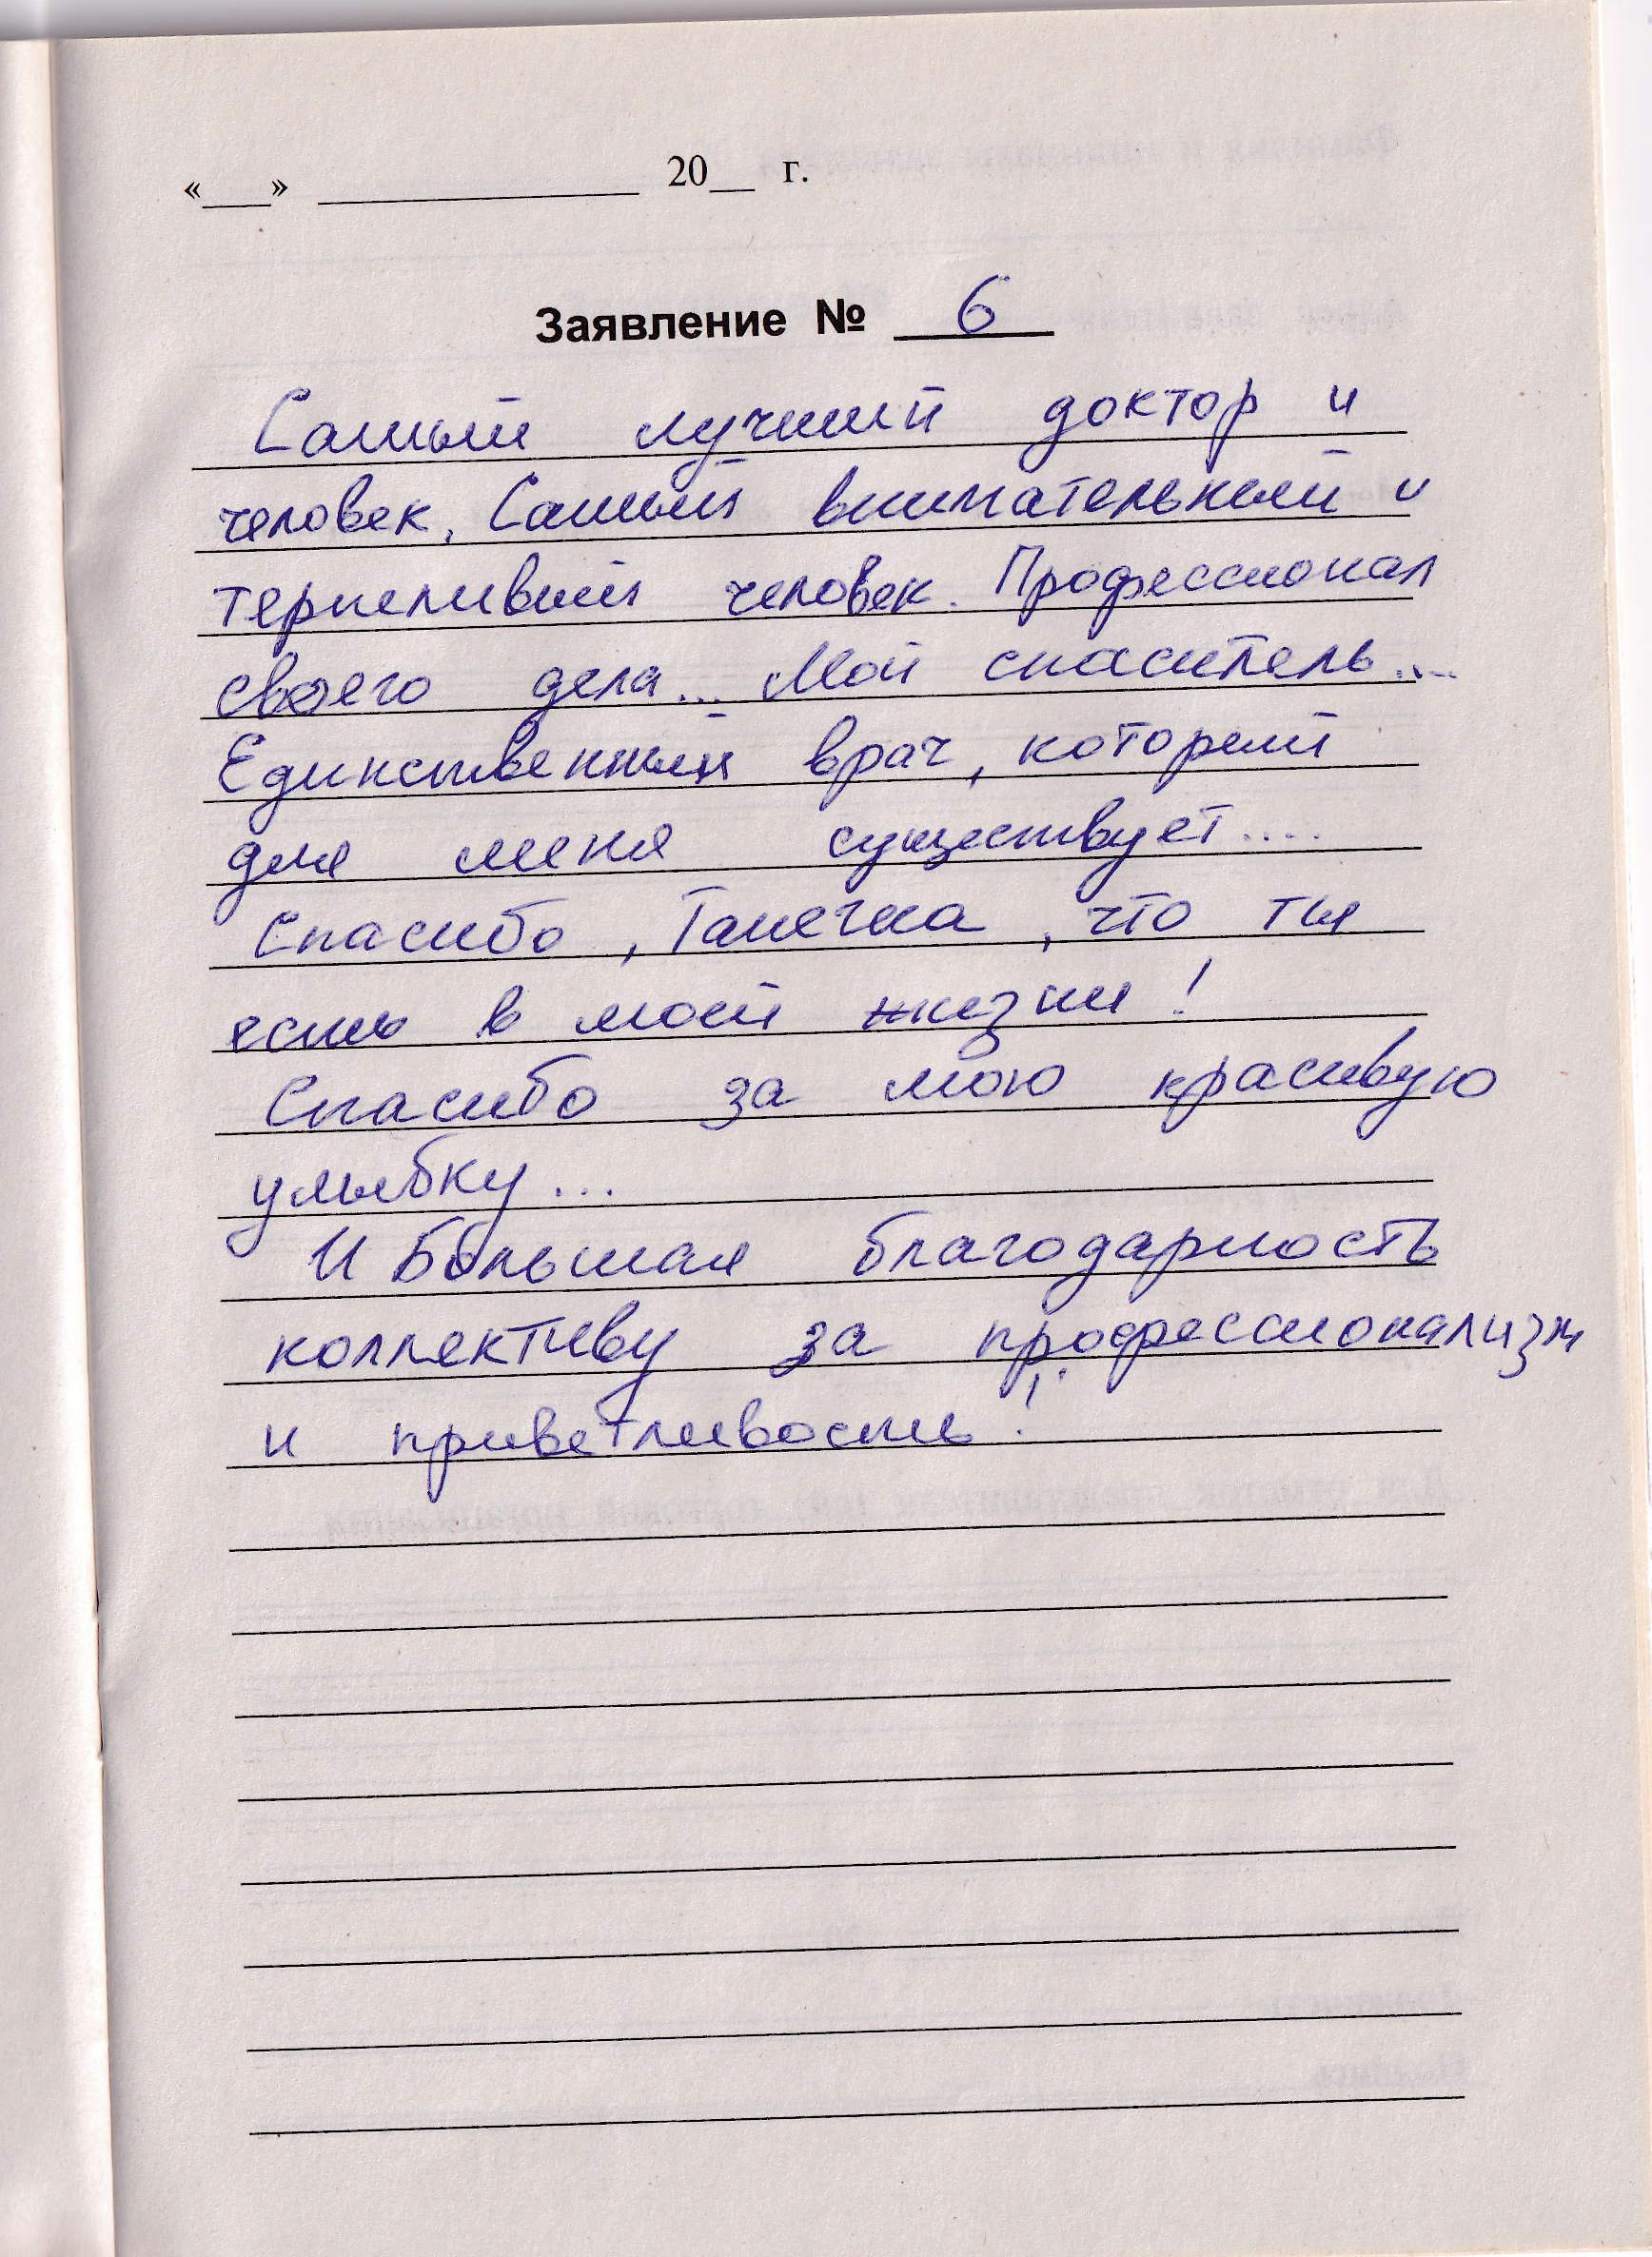 «___» ______________ 20__ г.
Заявление № 6
Самый лучший доктор и
человек. Самый внимательный и
терпеливый человек. Профессионал
своего дела... Мой спаситель....
Единственный врач, который
для меня существует....
Спасибо, Танечка, что ты
есть в моей жизни!
Спасибо за мою красивую
улыбку...
И Большая благодарность
коллективу за профессионализм
и приветливость!